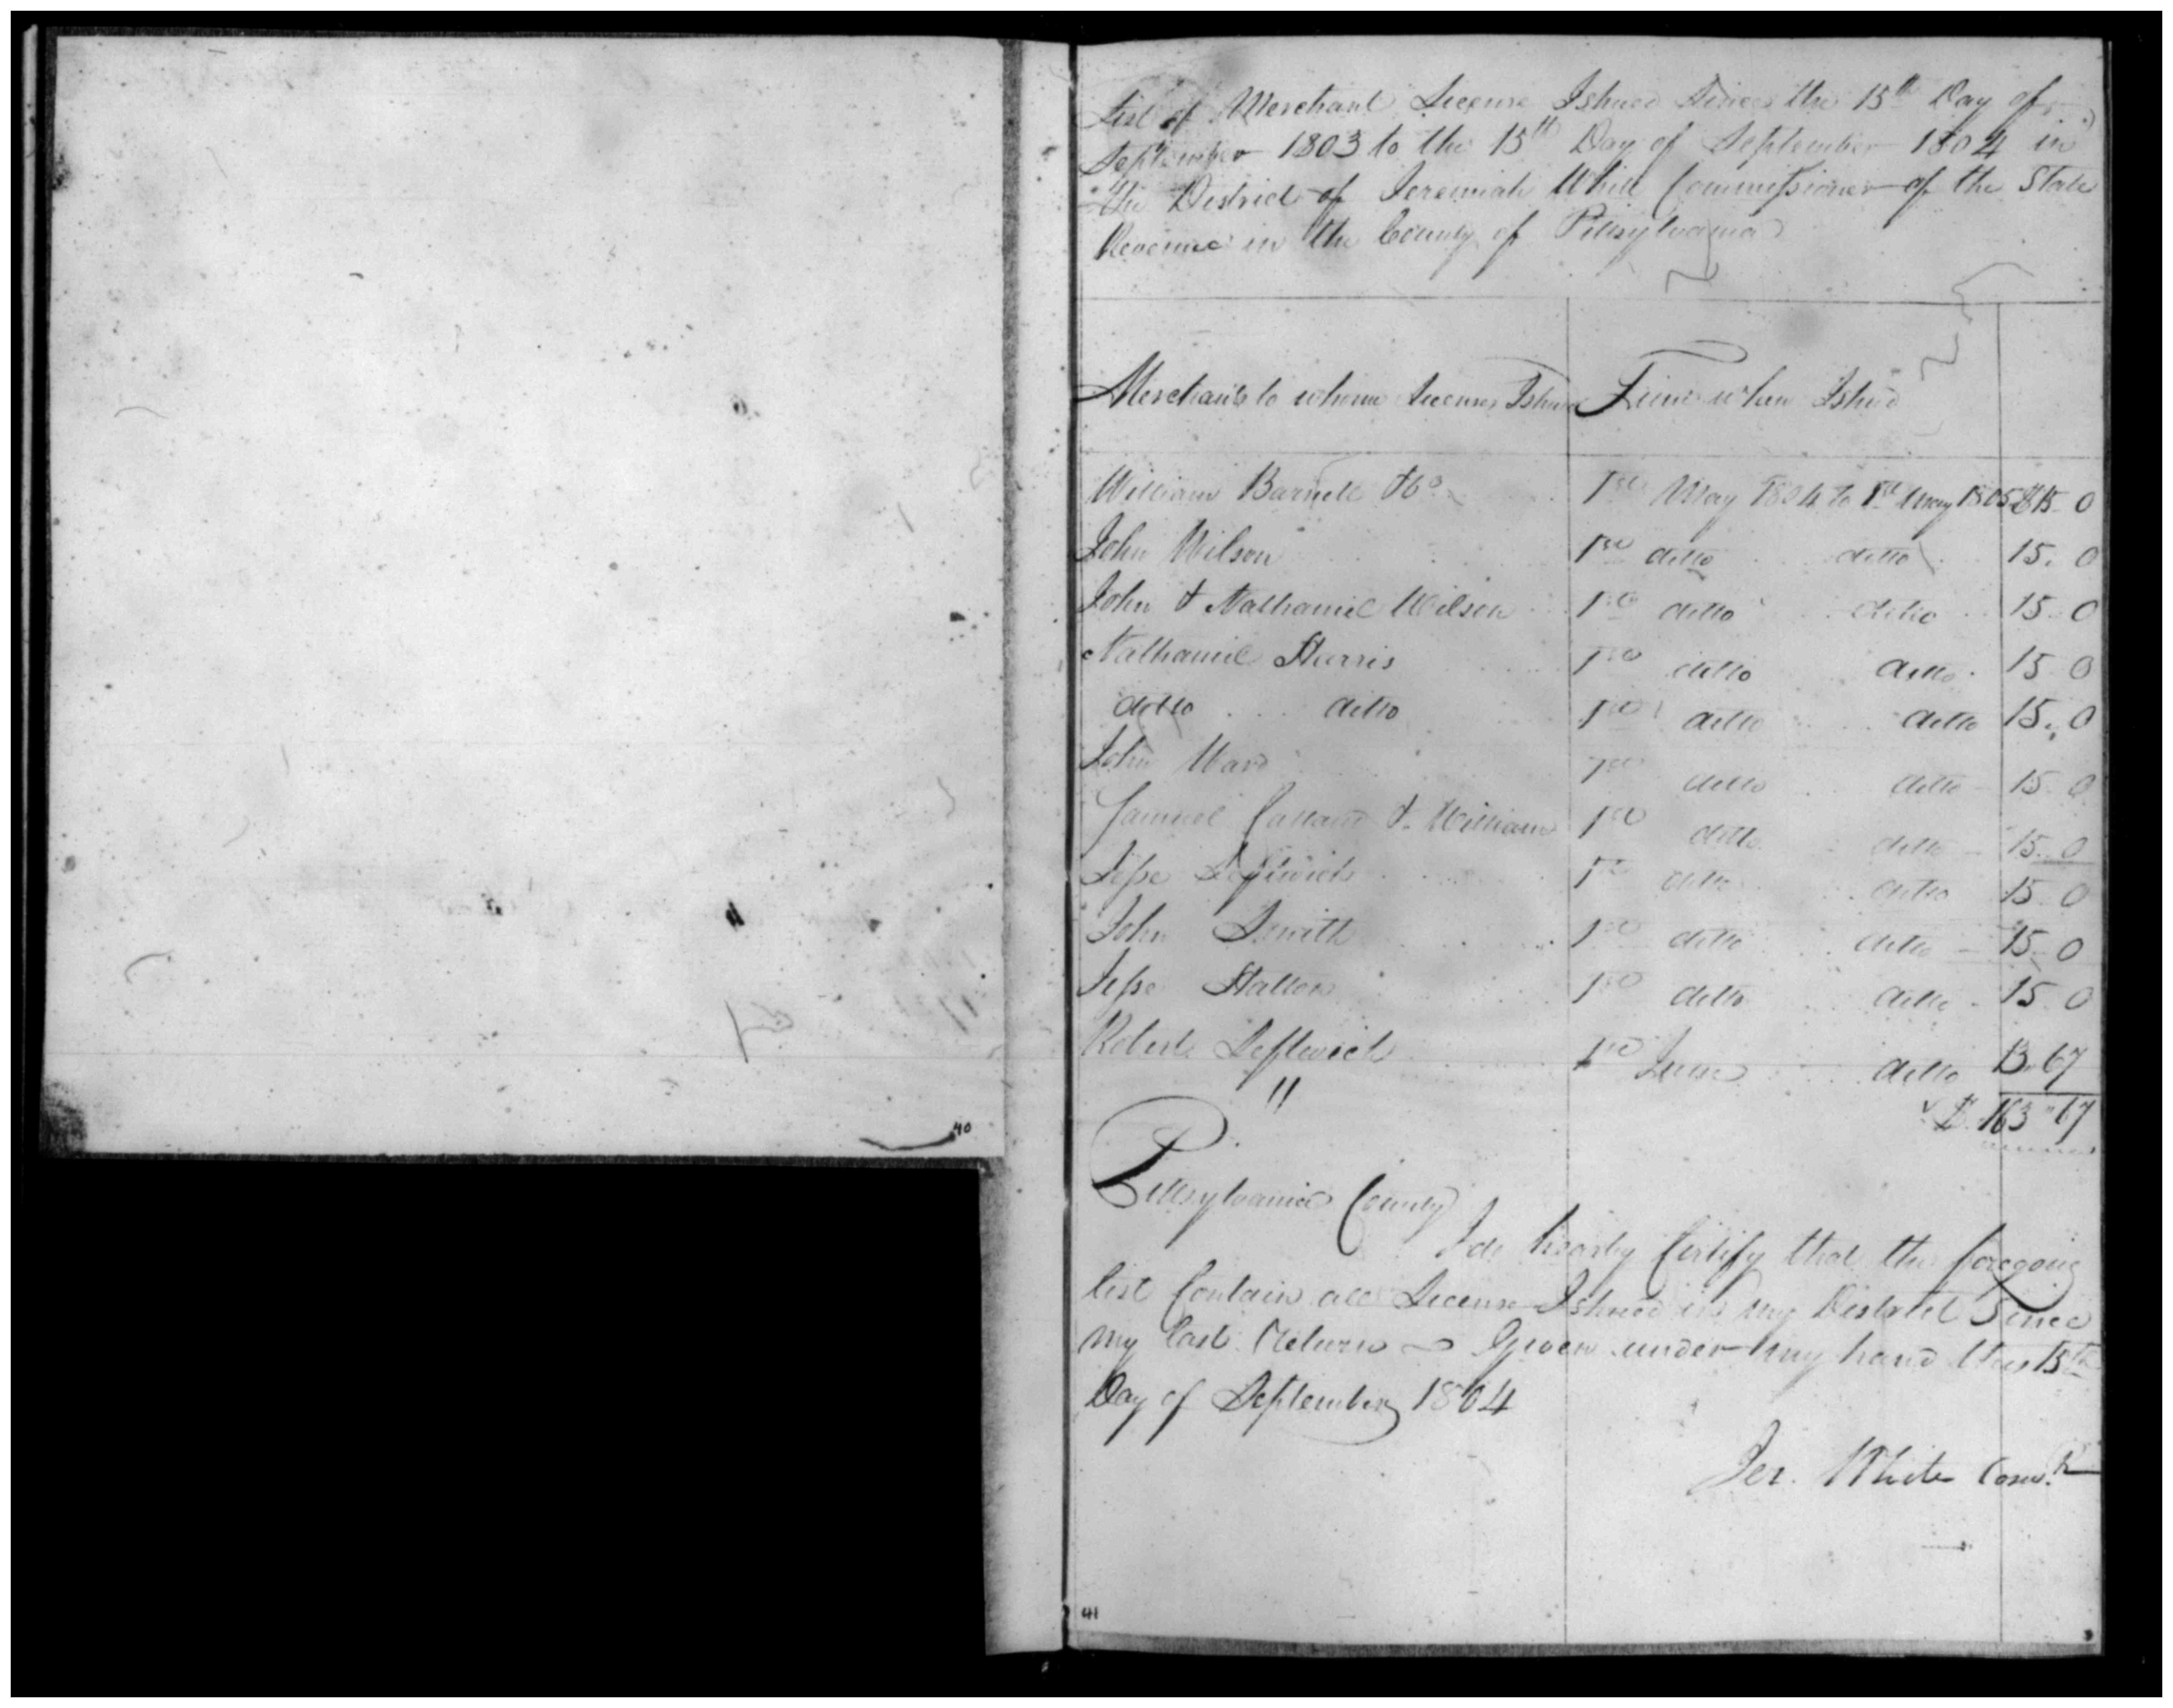 40
List of Merchant License Ishued Since the 15th Day of
September 1803 to the 15th Day of September 1804 in
the District of Jeremiah White Commissioner of the State
Revenue in the County of Pittsylvania
Merchants to whom Licenses Ishued Time when Ishued
William Barnett & Co 1st May 1804 to 1st May 1805 $15 0
John Wilson 1st ditto ditto 15. 0
John & Nathaniel Wilson 1st ditto ditto 15 0
Nathaniel Harris 1st ditto ditto 15 0
ditto ditto 1st ditto ditto 15. 0
John Ward 1st ditto ditto 15 0
Samuel Calland & William 1st ditto ditto 15. 0
Jesse Leftwich 1st ditto ditto 15 0
John Smith 1st ditto ditto 15 0
Jesse 1st ditto ditto 15 0
Robert Leftwich 1st June ditto 13 67
"
$ 163 " 67
Pittsylvania County
I do hearby Certify that the foregoing
list Contain all License Ishued in my District Since
my last Return Given under my hand this 15th
Day of September 1804
Jer. White Comr.
41